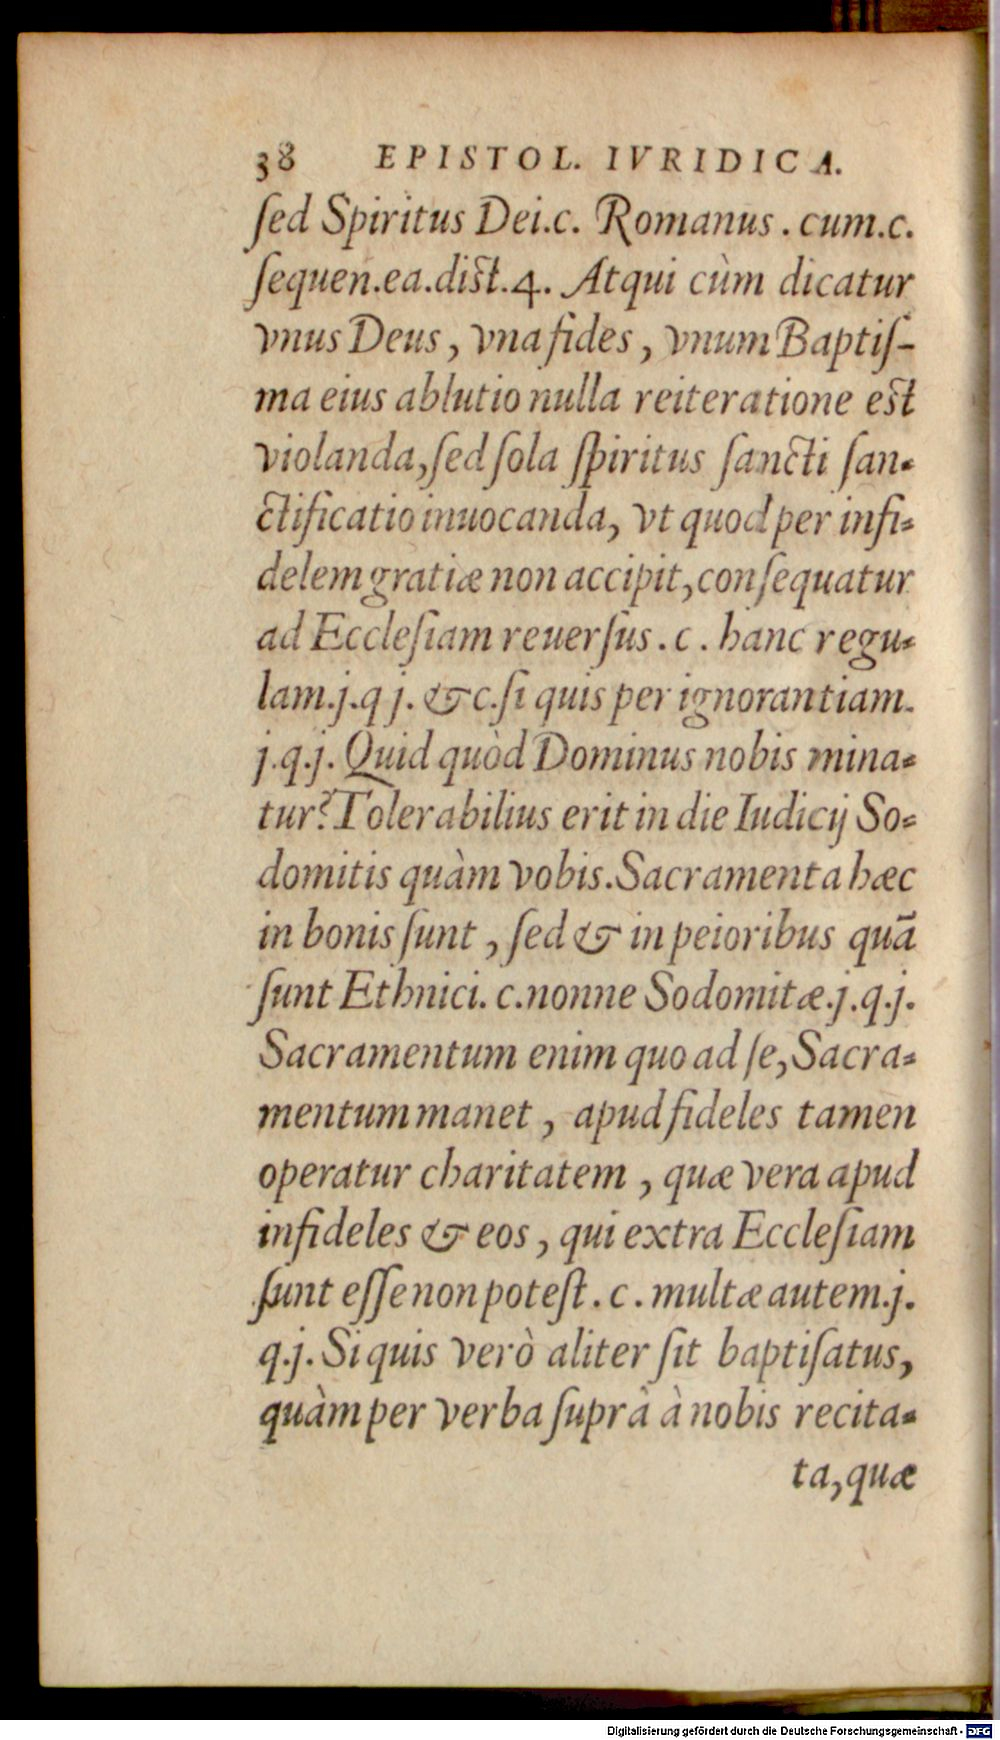 38 EPISTOL. IVRIDICA.
ſed Spiritus Dei.c. Romanus. cum.c.
ſequen.ea.diſt.4. Atqui cùm dicatur
vnus Deus, vna fides, vnum Baptiſ-
ma eius ablutio nulla reiteratione eſt
violanda, ſed ſola ſpiritus ſancti ſan-
ctificatio inuocanda, vt quod per infi-
delem gratiæ non accipit, conſequatur
ad Eccleſiam reuerſus. c. hanc regu-
lam.j.q j. & c.ſi quis per ignorantiam.
j.q.j. Quid quòd Dominus nobis mina-
tur? Tolerabilius erit in die Iudicij So-
domitis quàm vobis. Sacramenta hæc
in bonis ſunt, ſed & in peioribus quã
ſunt Ethnici. c.nonne Sodomitæ.j.q.j.
Sacramentum enim quo ad ſe, Sacra-
mentum manet, apud fideles tamen
operatur charitatem, quæ vera apud
infideles & eos, qui extra Eccleſiam
ſunt eſſe non poteſt. c. multæ autem.j.
q.j. Si quis verò aliter ſit baptiſatus,
quàm per verba ſuprà à nobis recita-
ta, quæ
Digitalisierung gefördert durch die Deutsche Forschungsgemeinschaft - DFG